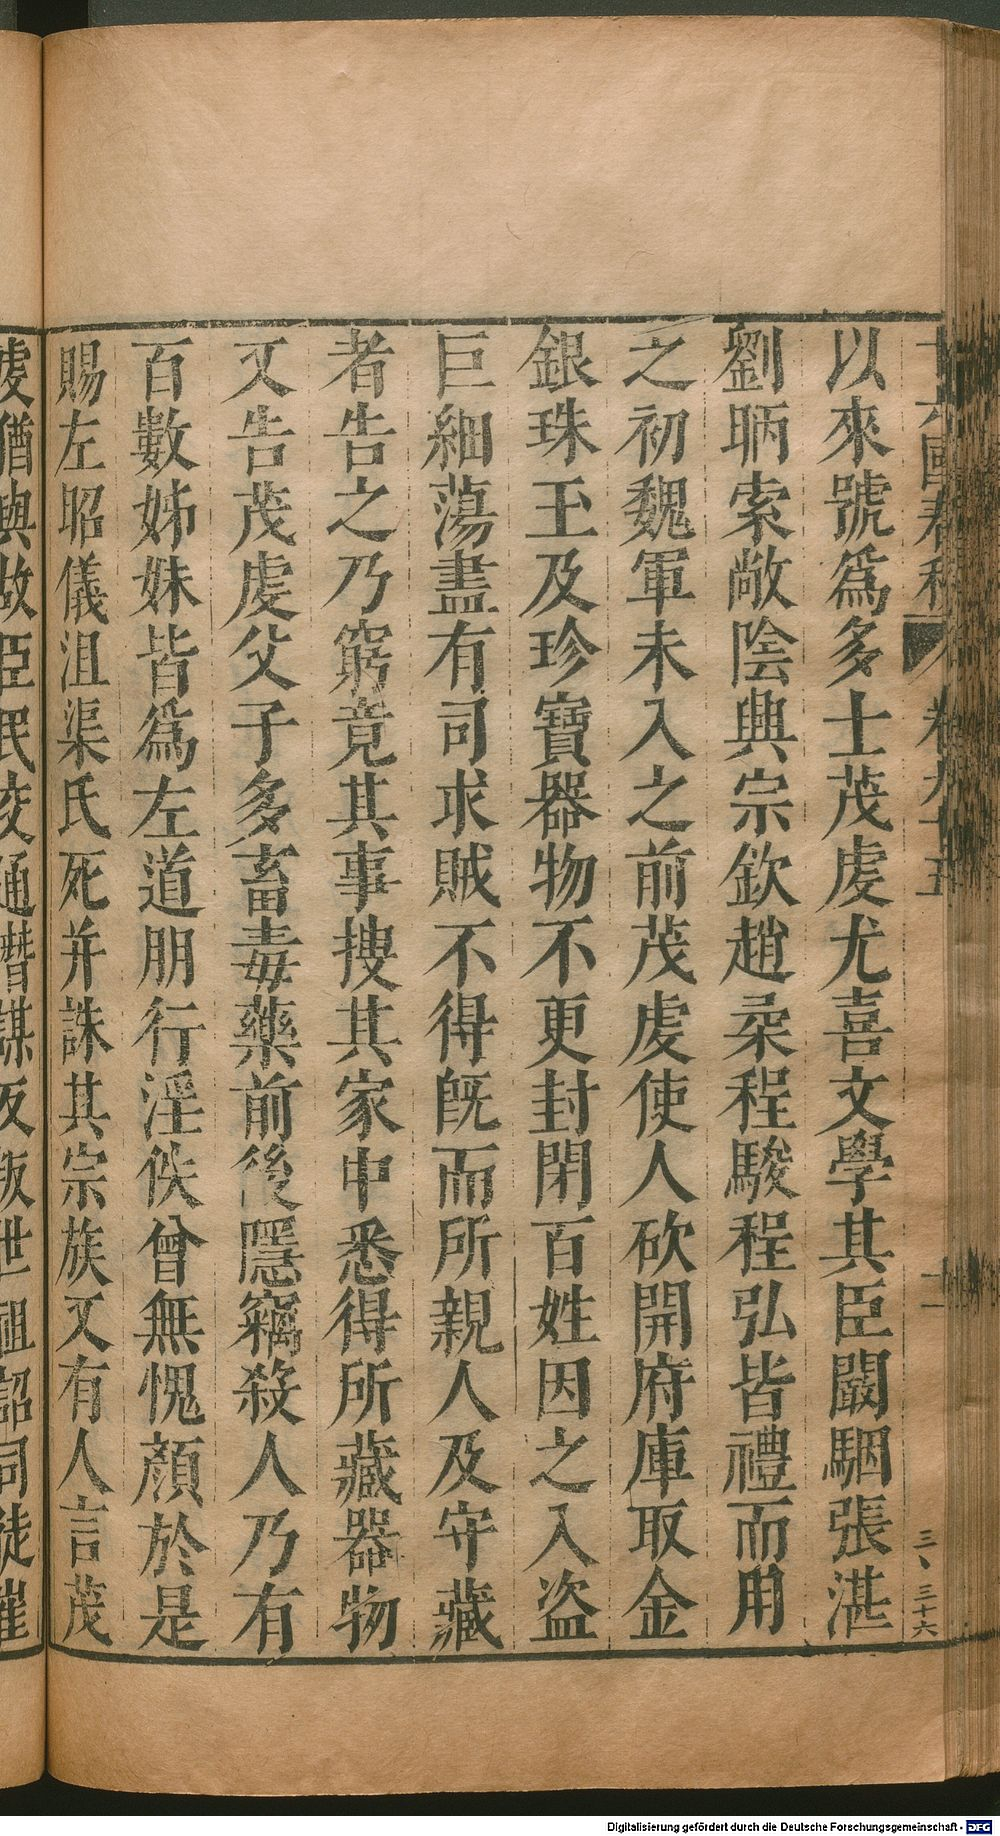 十六國春秋 卷九十五 十一 三、三十六
以來號爲多士茂虔尤喜文學其臣闞駰張湛
劉昞索敞陰興宗欽趙柔程駿程弘皆禮而用
之初魏軍未入之前茂虔使人砍開府庫取金
銀珠玉及珍寶器物不更封閉百姓因之入盜
巨細蕩盡有司求賊不得旣而所親人及守藏
者告之乃窮竟其事搜其家中悉得所藏器物
又告茂虔父子多畜毒藥前後隱竊殺人乃有
百數姊妹皆爲左道朋行淫佚曾無愧顏於是
賜左昭儀沮渠氏死并誅其宗族又有人言茂
虔猶與故臣民交通謀反叛世祖詔司徒崔
Digitalisierung gefördert durch die Deutsche Forschungsgemeinschaft - DFG